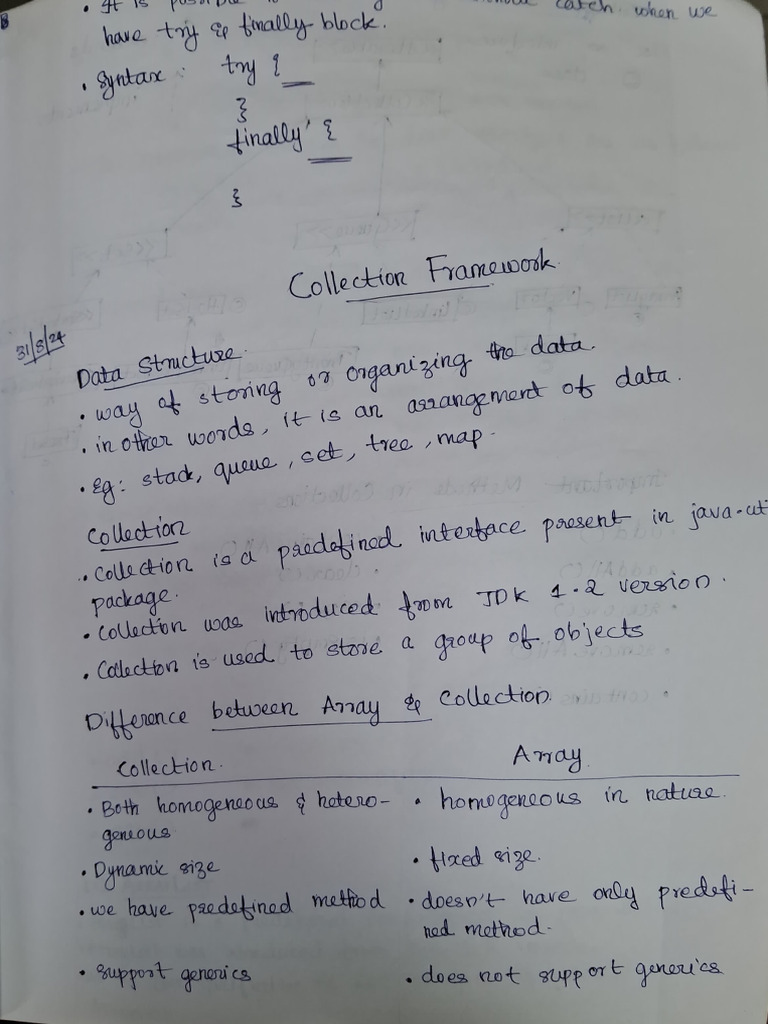 • It is
catch when we
have try & finally block.
• Syntax : try {
}
finally {
}
Collection Framework.
31/8/24
Data Structure.
• way of storing or organizing the data.
• in other words, it is an arrangement of data.
• Eg: stack, queue, set, tree, map.
Collection
• Collection is a predefined interface present in java.uti
package.
• Collection was introduced from JDK 1.2 version.
• Collection is used to store a group of objects
Difference between Array & Collection.
Collection. Array.
• Both homogeneous & hetero- • homogeneous in nature.
geneous
• Dynamic size • fixed size.
• we have predefined method • doesn't have only predefi-
ned method.
• Support generics • does not support generics